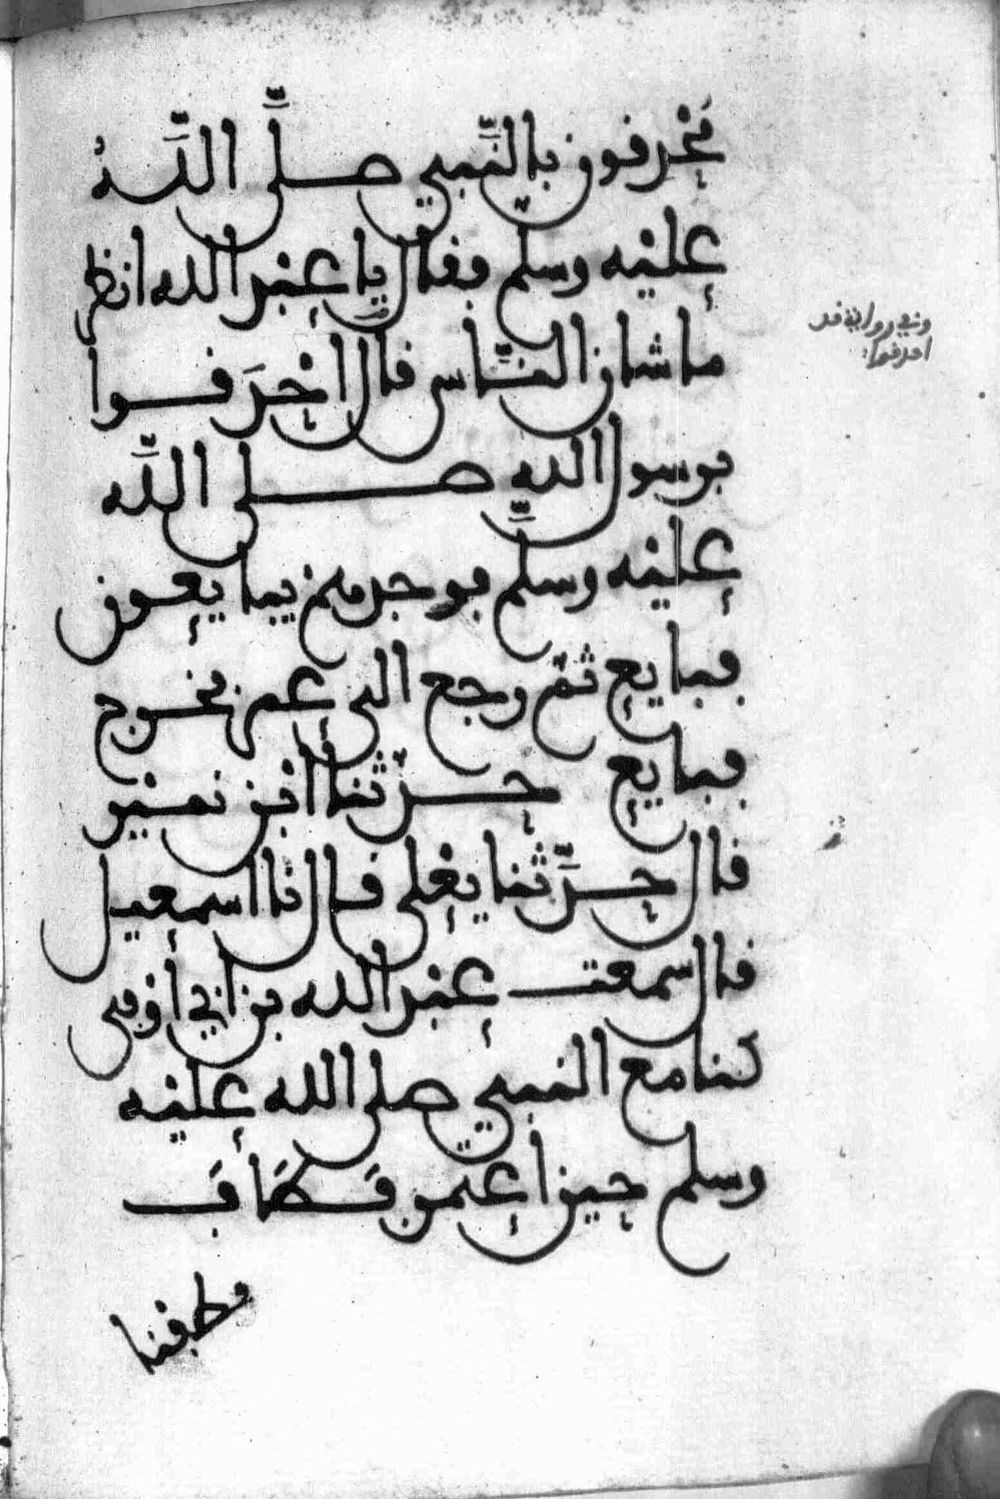 محدقون بالنَّبي صلَّى اللَّهُ
عليه وسلّم فقال يا عبد الله انظر
ما شان النَّاس قال احْدَقوا
برسول الله صلى اللَّه
عليه وسلَّم فوجدهم يبايعون
فبايع ثمّ رجع الى عمر فخرج
فبايع حدّثنا ابن نمير
قال حدَّثنا يعلى قال نا اسمعيل
قال سمعت عبد الله بن ابي اوفى
كنا مع النبي صلى الله عليه
وسلم حين اعتمر فَطَافَ
وطفنا
وفي رواية قد
احدقوا